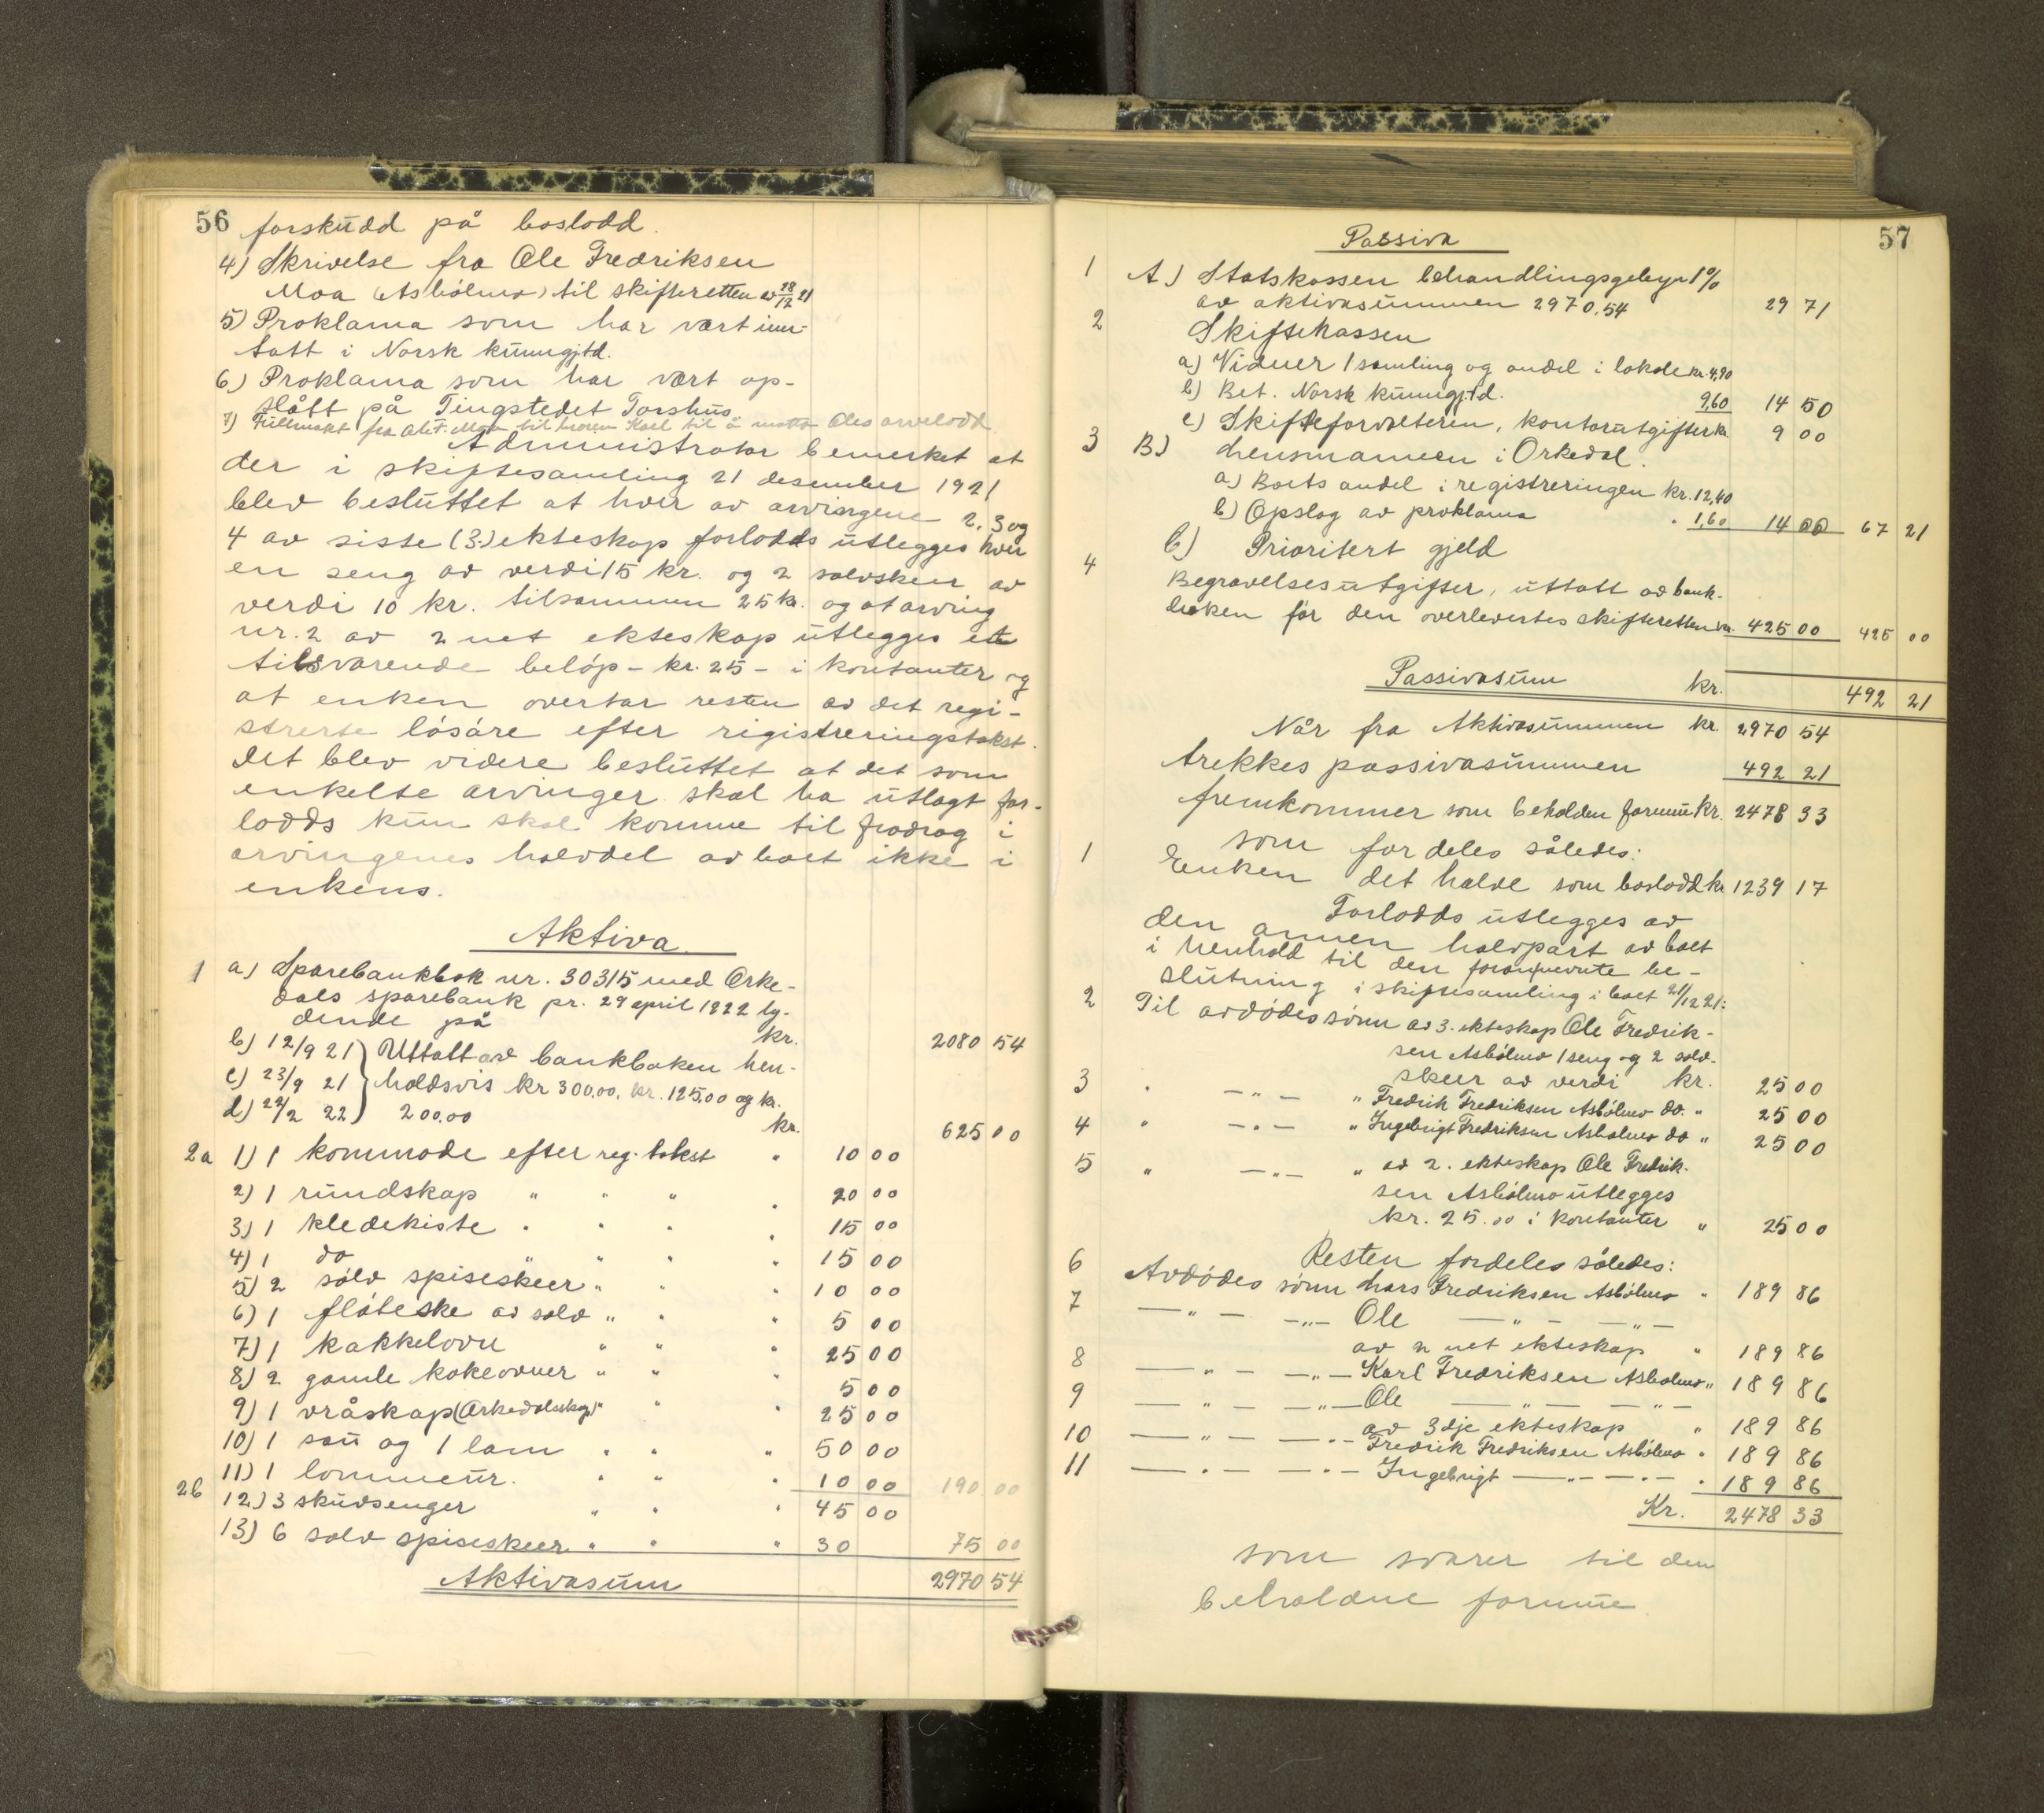 56 forskudd på boslodd.
4) Skrivelse fra Ole Fredriksen
Moa (Asbólmo) til skifteretten av 28/12 21
5) Proklama som har vært inn-
tatt i Norsk kunngjtd.
6) Proklama som har vært op-
slått på Tingstedet Torshus.
7) Fullmakt fra Ole F. Moa til broren Karl til å motta Oles arvelodd
Administrator bemerket at
der i skiftesamling 21 desember 1921
blev besluttet at hver av arvingene 2, 3 og
4 av siste (3.) ekteskap forlodds utlegges hver
en seng av verdi 15 kr. og 2 sølvskeer av
verdi 10 kr. tilsammen 25 kr. og at arving
nr. 2 av 2net ekteskap utlegges et
tilsvarende beløp - kr. 25 - i kontanter og
at enken overtar resten av det regi-
strerte lósóre efter rigistreringstakst.
Det blev videre besluttet at det som
enkelte arvinger skal ha utlagt for-
lodds kun skal komme til fradrag i
arvingenes halvdel av boet ikke i
enkens.
Aktiva.
1 a) Sparebankbok nr. 30315 med Orke-
dals sparebank pr. 29 april 1922 ly-
dende på kr. 2080 54
b) 12/9 21 } Uttatt av bankboken hen-
c) 23/9 21 } holdsvis kr 300,00, kr. 125,00 og kr.
d) 22/2 22 } 200.00 kr. 625 00
2a 1) 1 kommode efter reg. takst " 10 00
2) 1 rundskap " " " " 20 00
3) 1 kledekiste " " " " 15 00
4) 1 do " " " " 15 00
5) 2 sólv spiseskeer " " " 10 00
6) 1 flóteske av sølv " " " 5 00
7) 1 kakkelovn " " " 25 00
8) 2 gamle kokeovner " " " 5 00
9) 1 vråskap (Orkedalsskap) " " 25 00
10) 1 sau og 1 lam " " " 50 00
11) 1 lommeur. " " " 10 00 190 00
2b 12) 3 skuvsenger " " " 45 00
13) 6 sølv spiseskeer " " " 30 75 00
Aktivasum 2970 54
57
Passiva
1 A) Statskassen behandlingsgebyr 1%
av aktivasummen 2970.54 29 71
2 Skiftekassen
a) Vidner 1 samling og andel i lokale kr. 4,90
b) Bet. Norsk kunngj.td. 9,60 14 50
c) Skifteforvalteren, kontorutgifter kr. 9 00
3 B) Lensmannen i Orkedal.
a) Boets andel i registreringen kr. 12,40
b) Opslag av proklama " 1,60 14 00 67 21
C) Prioritert gjeld
4 Begravelsesutgifter, uttatt av bank-
boken før den overlevertes skifteretten kr. 425 00 425 00
Passivasum kr. 492 21
Når fra Aktivasummen kr. 2970 54
trekkes passivasummen 492 21
fremkommer som beholden formue kr. 2478 33
som fordeles således:
1 Enken det halve som boslodd kr 1239 17
Forlodds utlegges av
den annen halvpart av boet
i henhold til den forannevnte be-
slutning i skiftesamling i boet 21/12 21:
2 Til avdødes sønn av 3. ekteskap Ole Fredrik-
sen Asbólmo 1 seng og 2 sølv-
skeer av verdi kr. 25 00
3 " — " — " Fredrik Fredriksen Asbólmo do. " 25 00
4 " — " — " Ingebrigt Fredriksen Asbolmo do " 25 00
5 " — " — " av 2. ekteskap Ole Fredrik-
sen Asbólmo utlegges
kr. 25.00 i kontanter " 25 00
Resten fordeles således:
6 Avdødes sønn Lars Fredriksen Asbólmo " 189 86
7 — " — — " — Ole — " — — " —
av 2net ekteskap " 189 86
8 — " — — " — Karl Fredriksen Asbolmo " 189 86
9 — " — — " — Ole — " — — " —
av 3dje ekteskap " 189 86
10 — " — — " — Fredrik Fredriksen Asbólmo " 189 86
11 — " — — " — Ingebrigt — " — — " — " 189 86
Kr. 2478 33
som svarer til den
beholdne formue